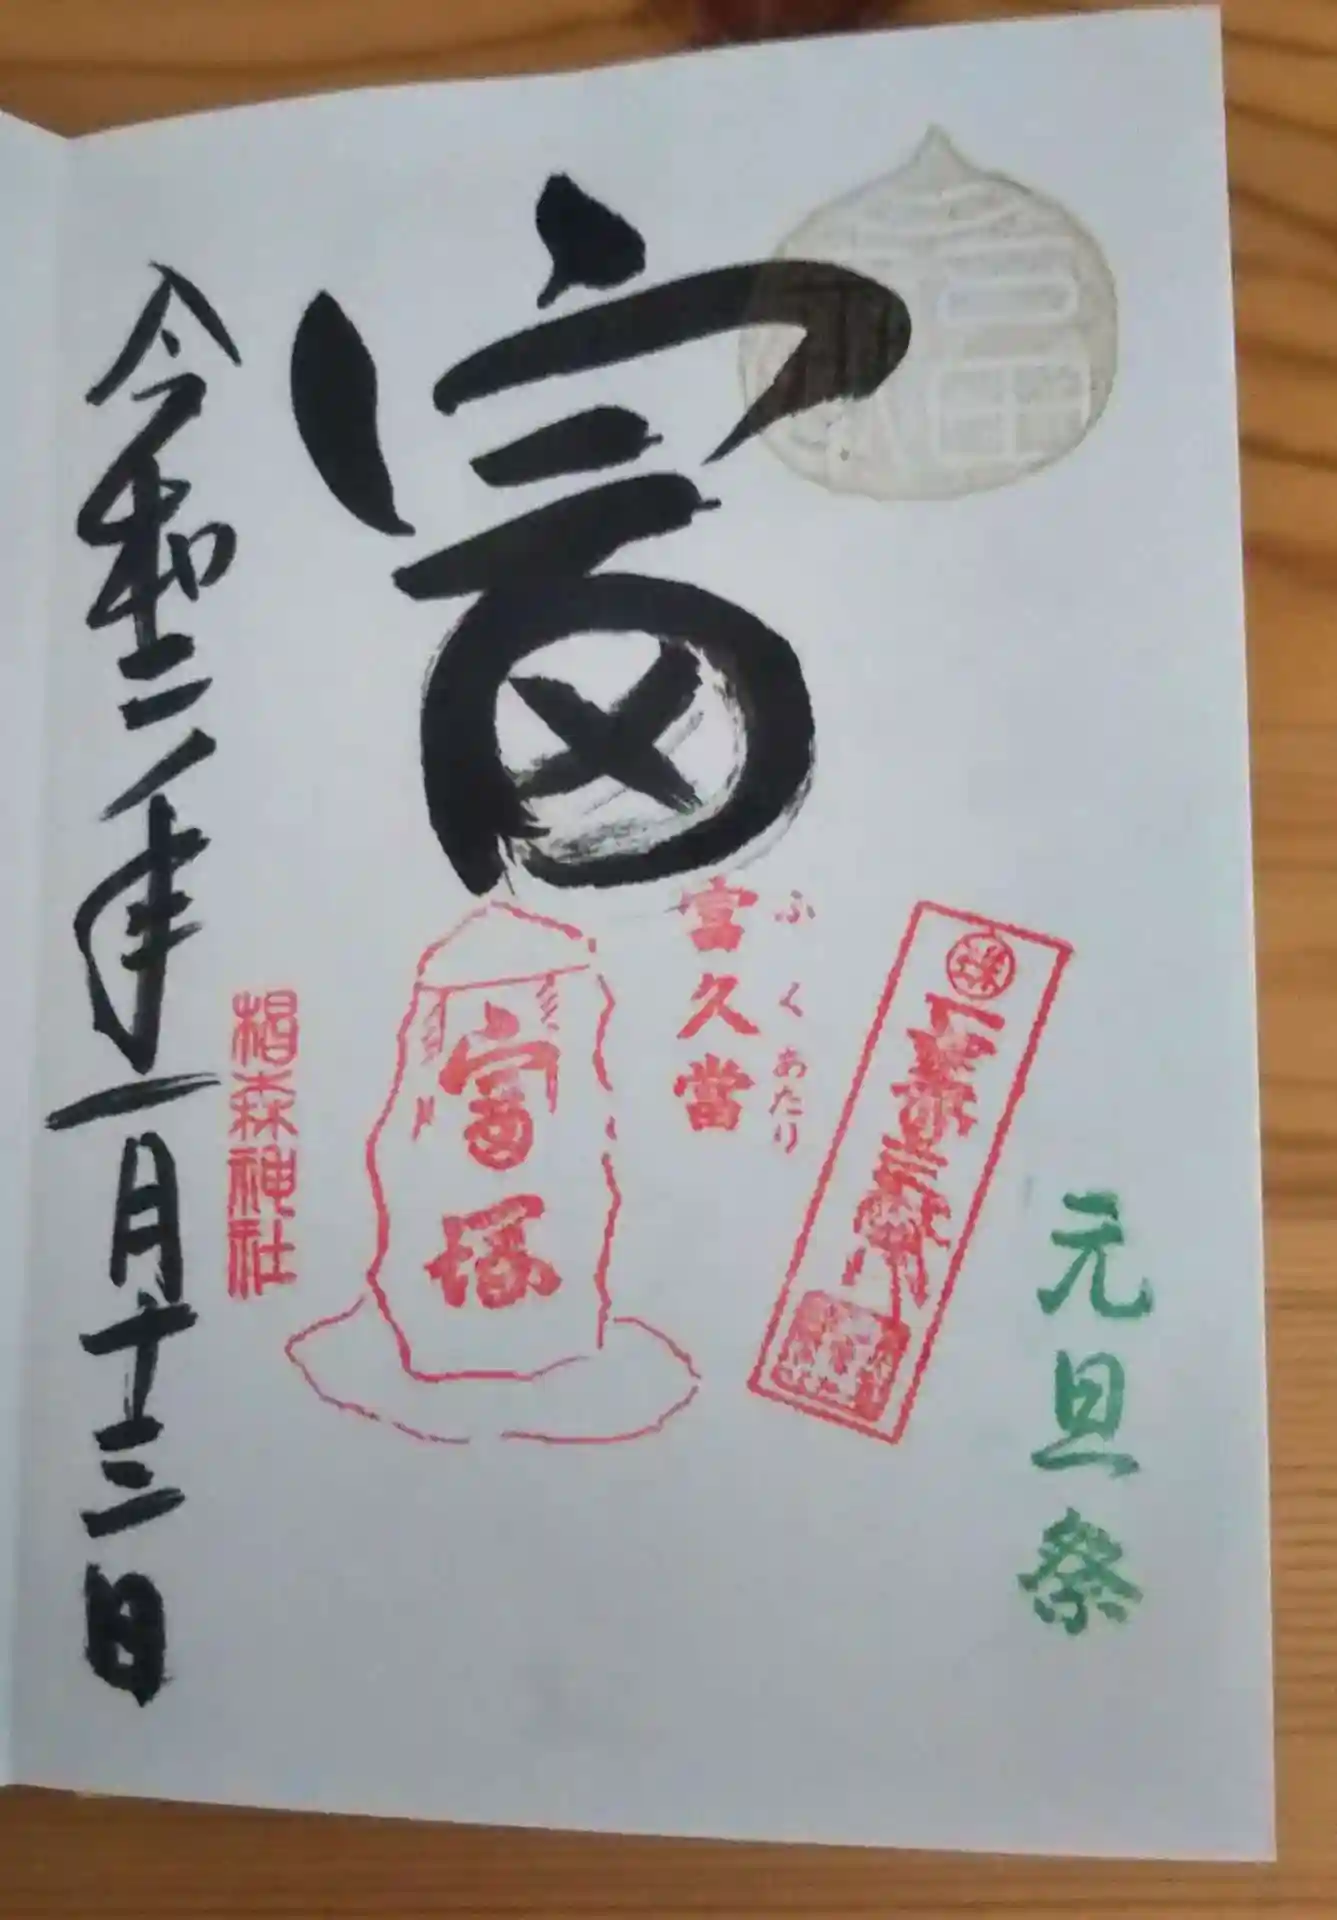 元旦祭
富
ふくあたり
富久當
富塚
椙森神社
令和二年一月十三日